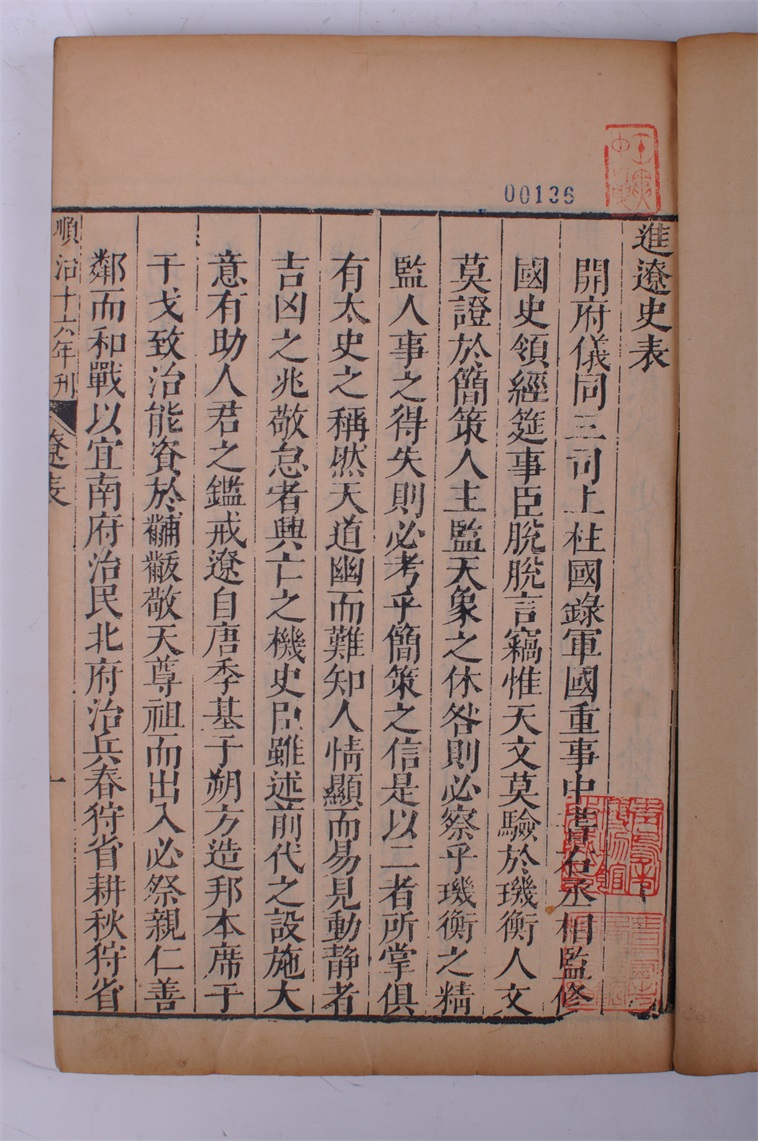 00136
進遼史表
開府儀同三司上柱國錄軍國重事中書右丞相監修
國史領經筵事臣脫脫言竊惟天文莫驗於璣衡人文
莫證於簡策人主監天象之休咎則必察乎璣衡之精
監人事之得失則必考乎簡策之信是以二者所掌俱
有太史之稱然天道幽而難知人情顯而易見動静者
吉凶之兆敬怠者興亡之機史臣雖述前代之設施大
意有助人君之鑑戒遼自唐季基于朔方造邦本席于
干戈致治能資於黼黻敬天尊祖而出入必祭親仁善
鄰而和戰以宜南府治民北府治兵春狩省耕秋狩省
順治十六年刊
遼表
一